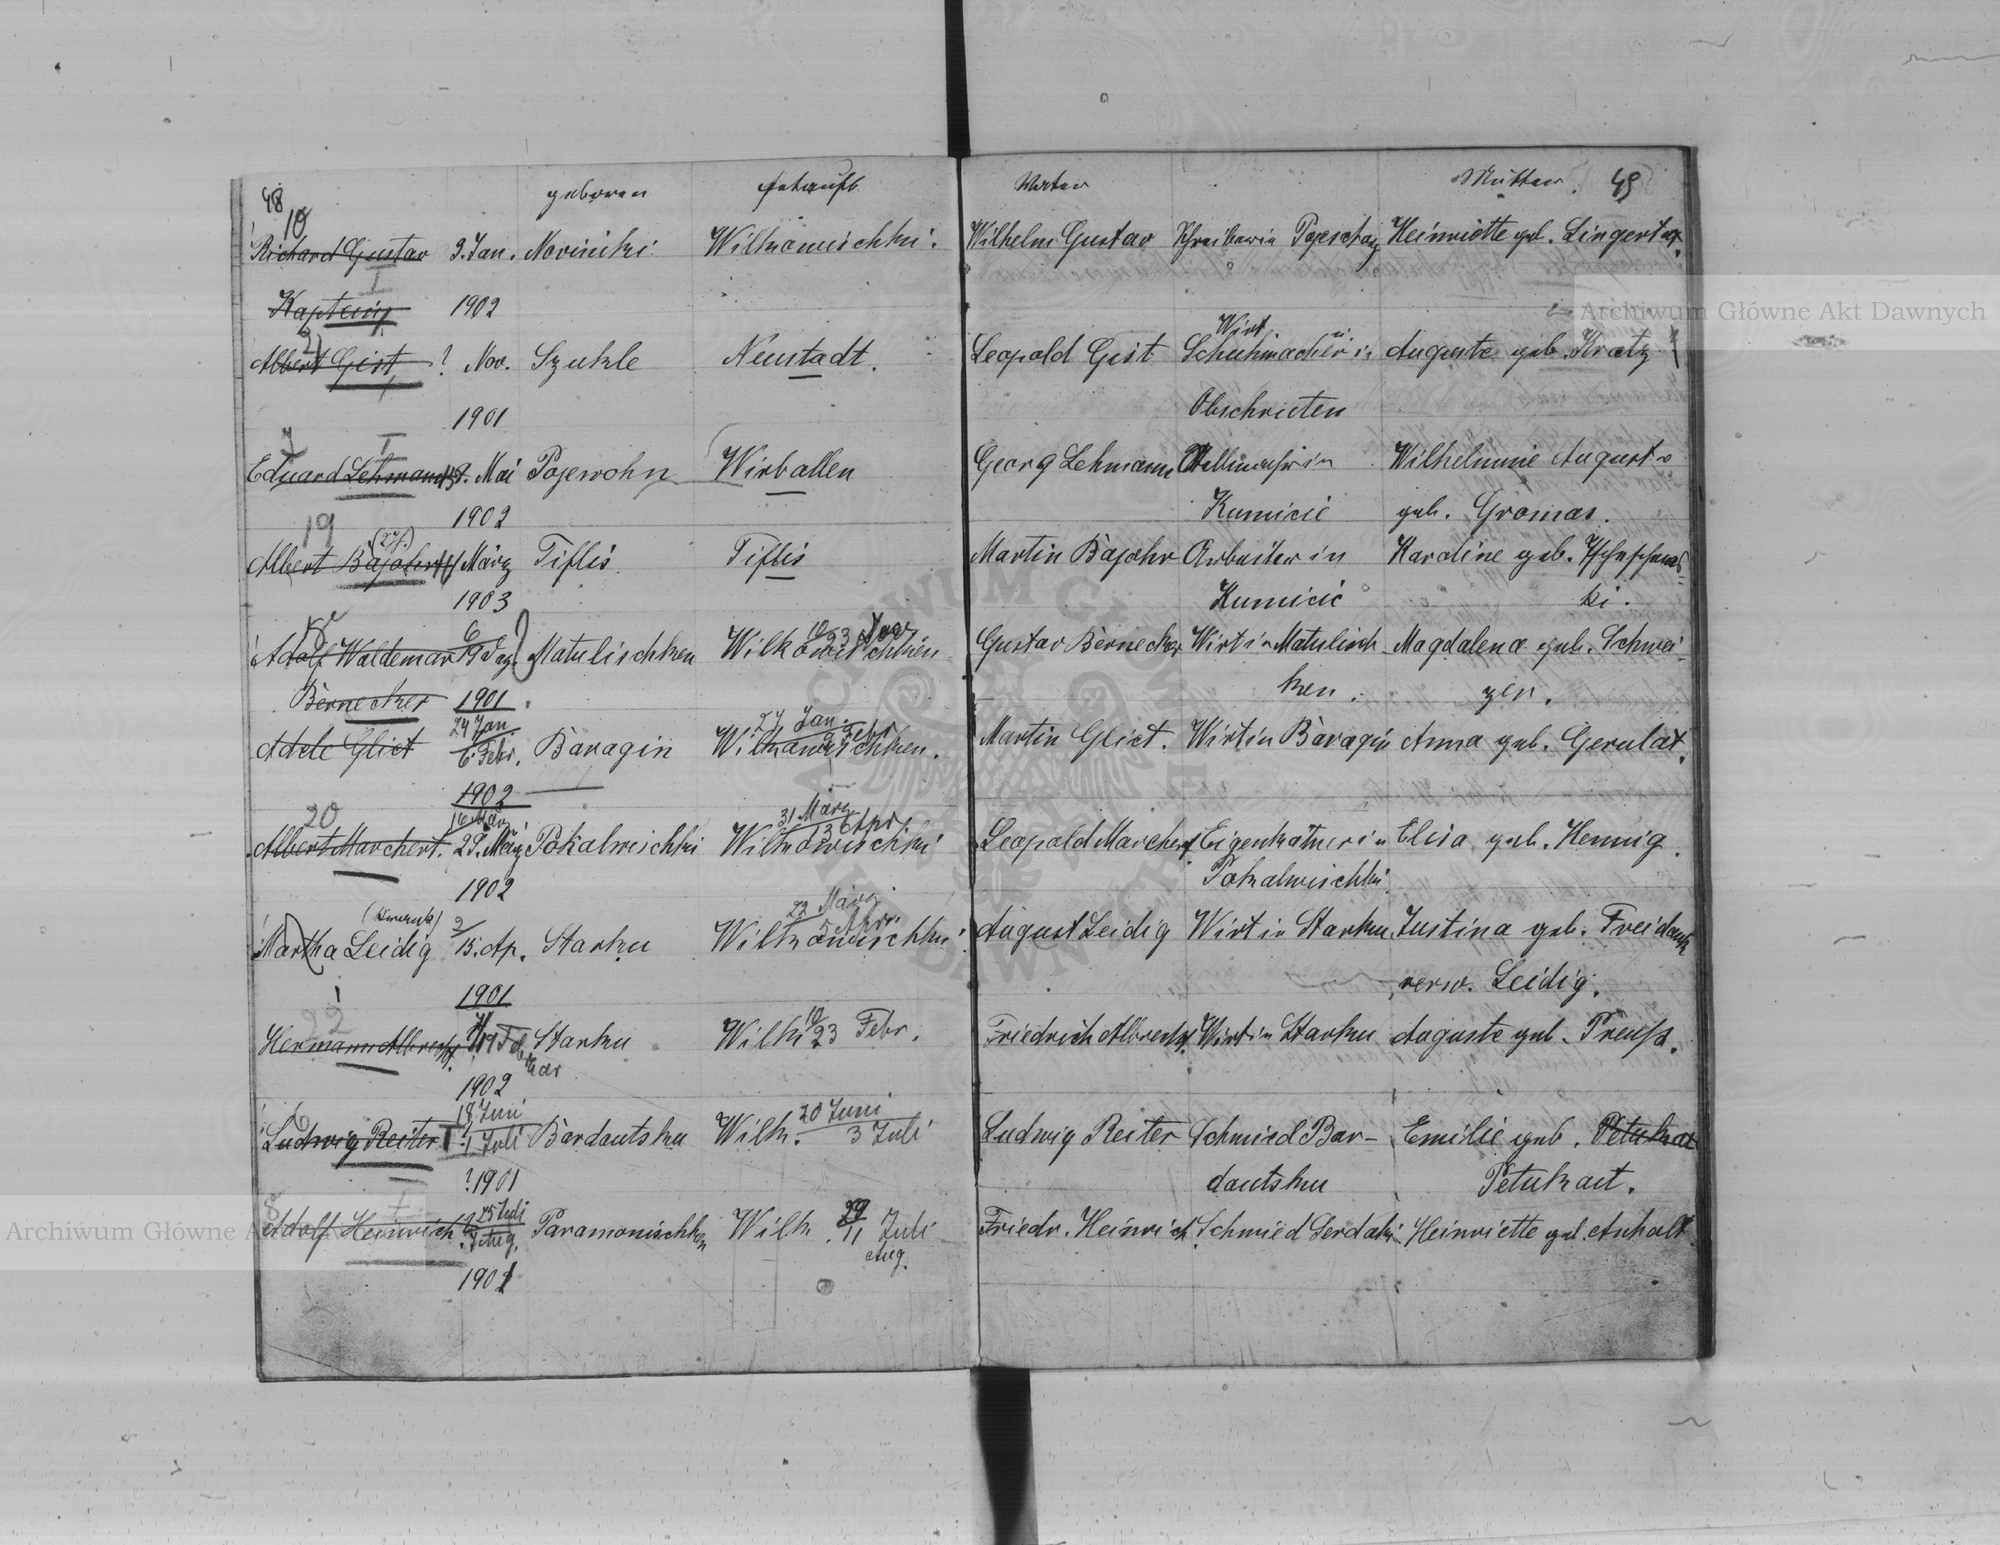 48
geboren getauft
Vater Mutter. 49
10
Richard Gustav 2. Jan. Noviniki Wilkowischki. Wilhelm Gustav Heinriette geb. Lingertat.
Kapteinz 1902
Wirt
Albert Geist ? Nov. Szukle Neustadt. Leopold Geist Schuhmacher in Auguste geb. Kratz
1901 Obschruten
Eduard Lehmann Mai Pojewohn Wirballen Georg Lehmann in Wilhelmine Auguste
1902 Kumicic geb. Gromas.
19
Albert Bajohr März Tiflis Tiflis Martin Bajohr Arbeiter in Karoline geb.
1903 Kumicic ki.
18 6 10
Adolf Waldemar 19 Matulischken Wilkowischken 23 Gustav Bernecker Wirt in Matulisch Magdalena geb. Schwei
Bernecker 1901. ken. zer.
24 Jan 27 Jan.
Adele Glict 6. Febr. Baragin Wilkowischken. Febr Martin Glict. Wirt in Baragin Anna geb. Gerulat.
1902
20 16 März 31 März
Albert Marchert. 29. März Pokalwischki Wilkowischki Apr Leopold Marchert Eigenkätner in Elisa geb. Hennig
1902 Pokalwischki
2 22 März
Martha Leidig 15. Ap. Starku Wilkowischki 5 Apr. August Leidig Wirt in Starku Justina geb. Freidank
1901 verw. Leidig.
22
Hermann Albrecht 19 Febr Starku Wilk. 10 23 Febr. Friedrich Albrecht. Wirt in Starku Auguste geb. Preuß.
uar
1902
18 Juni 20 Juni
Ludwig Reiter 1 Juli Bardautsku Wilk. 3 Juli Ludwig Reiter Schmied Bar- Emilie geb. Petukat
?1901 dautsku Petukait.
25 Juli 29
Adolf Heinrich Aug. Paramonischken Wilk. 11 Juli Friedr. Heinrich Schmied Serdaki Heinriette geb. Anhalt
Aug.
1901
Archiwum Główne Akt Dawnych
Archiwum Główne
ARCHIWUM GŁÓWNE AKT DAWNYCH